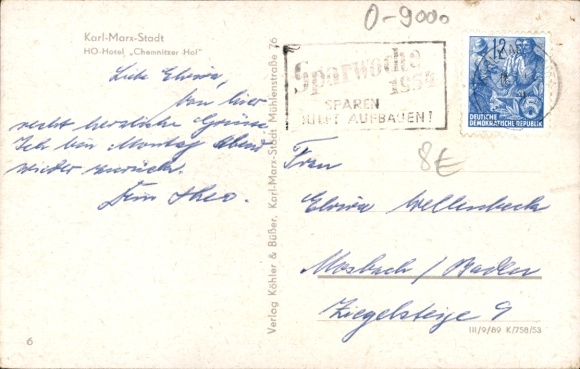 O-9000
Karl-Marx-Stadt
HO-Hotel „Chemnitzer Hof"
Liebe Elvira,
von hier
recht herzliche Grüsse
Ich bin Montag Abend
wieder zurück.
Dein Theo.
Verlag Köhler & Büßer, Karl-Marx-Stadt Mühlenstraße 76
Sparwoche
1954
SPAREN
HILFT AUFBAUEN!
12
DEUTSCHE
DEMOKRATISCHE REPUBLIK
8 €
Frau
Elvira Wellenbeck
Mosbach / Baden
Ziegelsteige 9
6
III/9/89 K/758/53